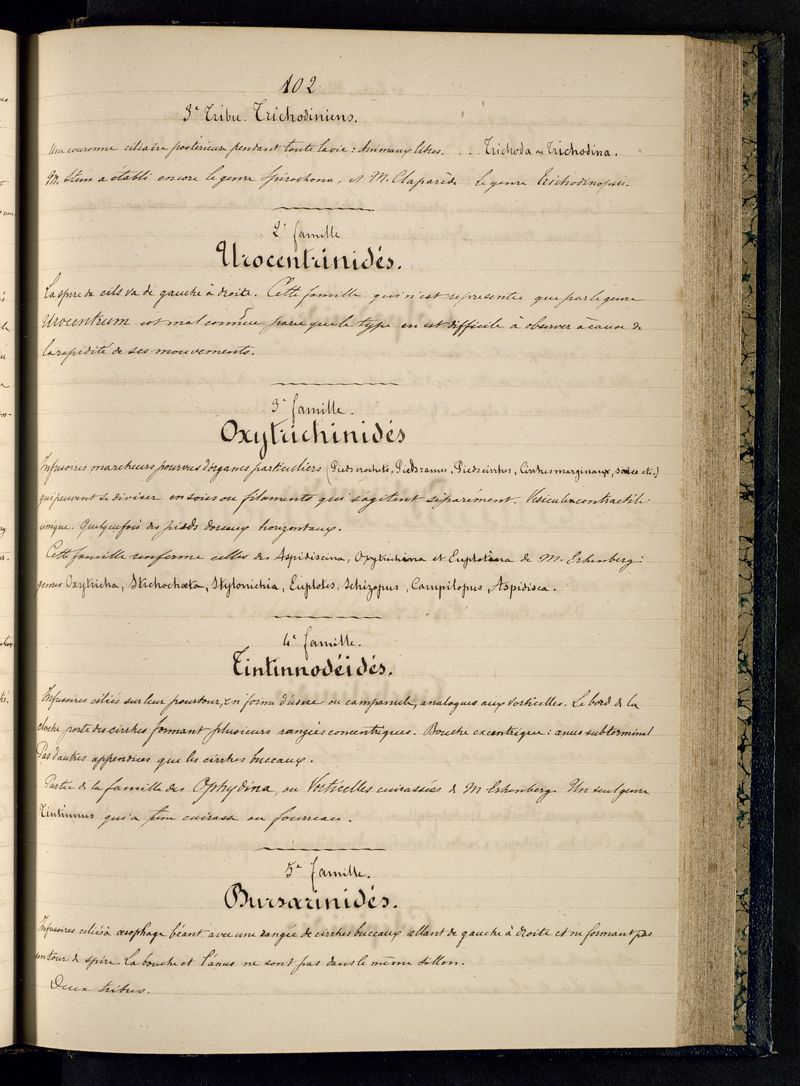 102
3e Tribu. Trichodiniens.
Une couronne ciliaire postérieure pendant toute la vie : Animaux libres. ... Trichoda ou Trichodina.
M. Stein a établi encore le genre Spirochona, et M. Claparède le genre Trichodinopsis.
2e famille
Urocentrinidés.
La spire de cils va de gauche à droite. Cette famille qui n'est représentée que par le genre
Urocentrum est mal connue parce que le type en est difficile à observer à cause de
la rapidité de ses mouvements.
3e famille.
Oxytrichinidés
Infusoires marcheurs pourvus d'organes particuliers (Pieds crochets, Pieds rames, Pieds cirrhes, Cirrhes marginaux, soies etc.)
qui peuvent se diviser en soies ou filaments qui s'agitent séparément. Vésicule contractile
unique. Quelquefois des pieds dorsaux horizontaux.
Cette famille renferme celles des Aspidiscina, Oxytrichina et Euplotina de M. Erhenberg :
genres Oxytricha, Stichochœta, Stylonichia, Euplotes, Schizopus, Campilopus, Aspidisca.
4e famille.
Tintinnodéidés.
Infusoires ciliés sur leur pourtour, en forme d'urne ou campanule, analogues aux Vorticelles. Le bord de la
cloche porte des cirrhes formant plusieurs rangées concentriques. Bouche excentrique : anus subterminal
Pas d'autres appendices que les cirrhes buccaux.
Partie de la famille des Ophrydina, ou Vorticelles cuirassées de M Erhenberg. Un seul genre
Tintinnus qui a une cuirasse ou fourreau.
5e famille.
Bursarinidés.
Infusoires ciliés à œsophage béant avec une rangée de cirrhes buccaux allant de gauche à droite et ne formant pas
un tour de spire. La bouche et l'anus ne sont pas dans le même sillon.
Deux tribus.